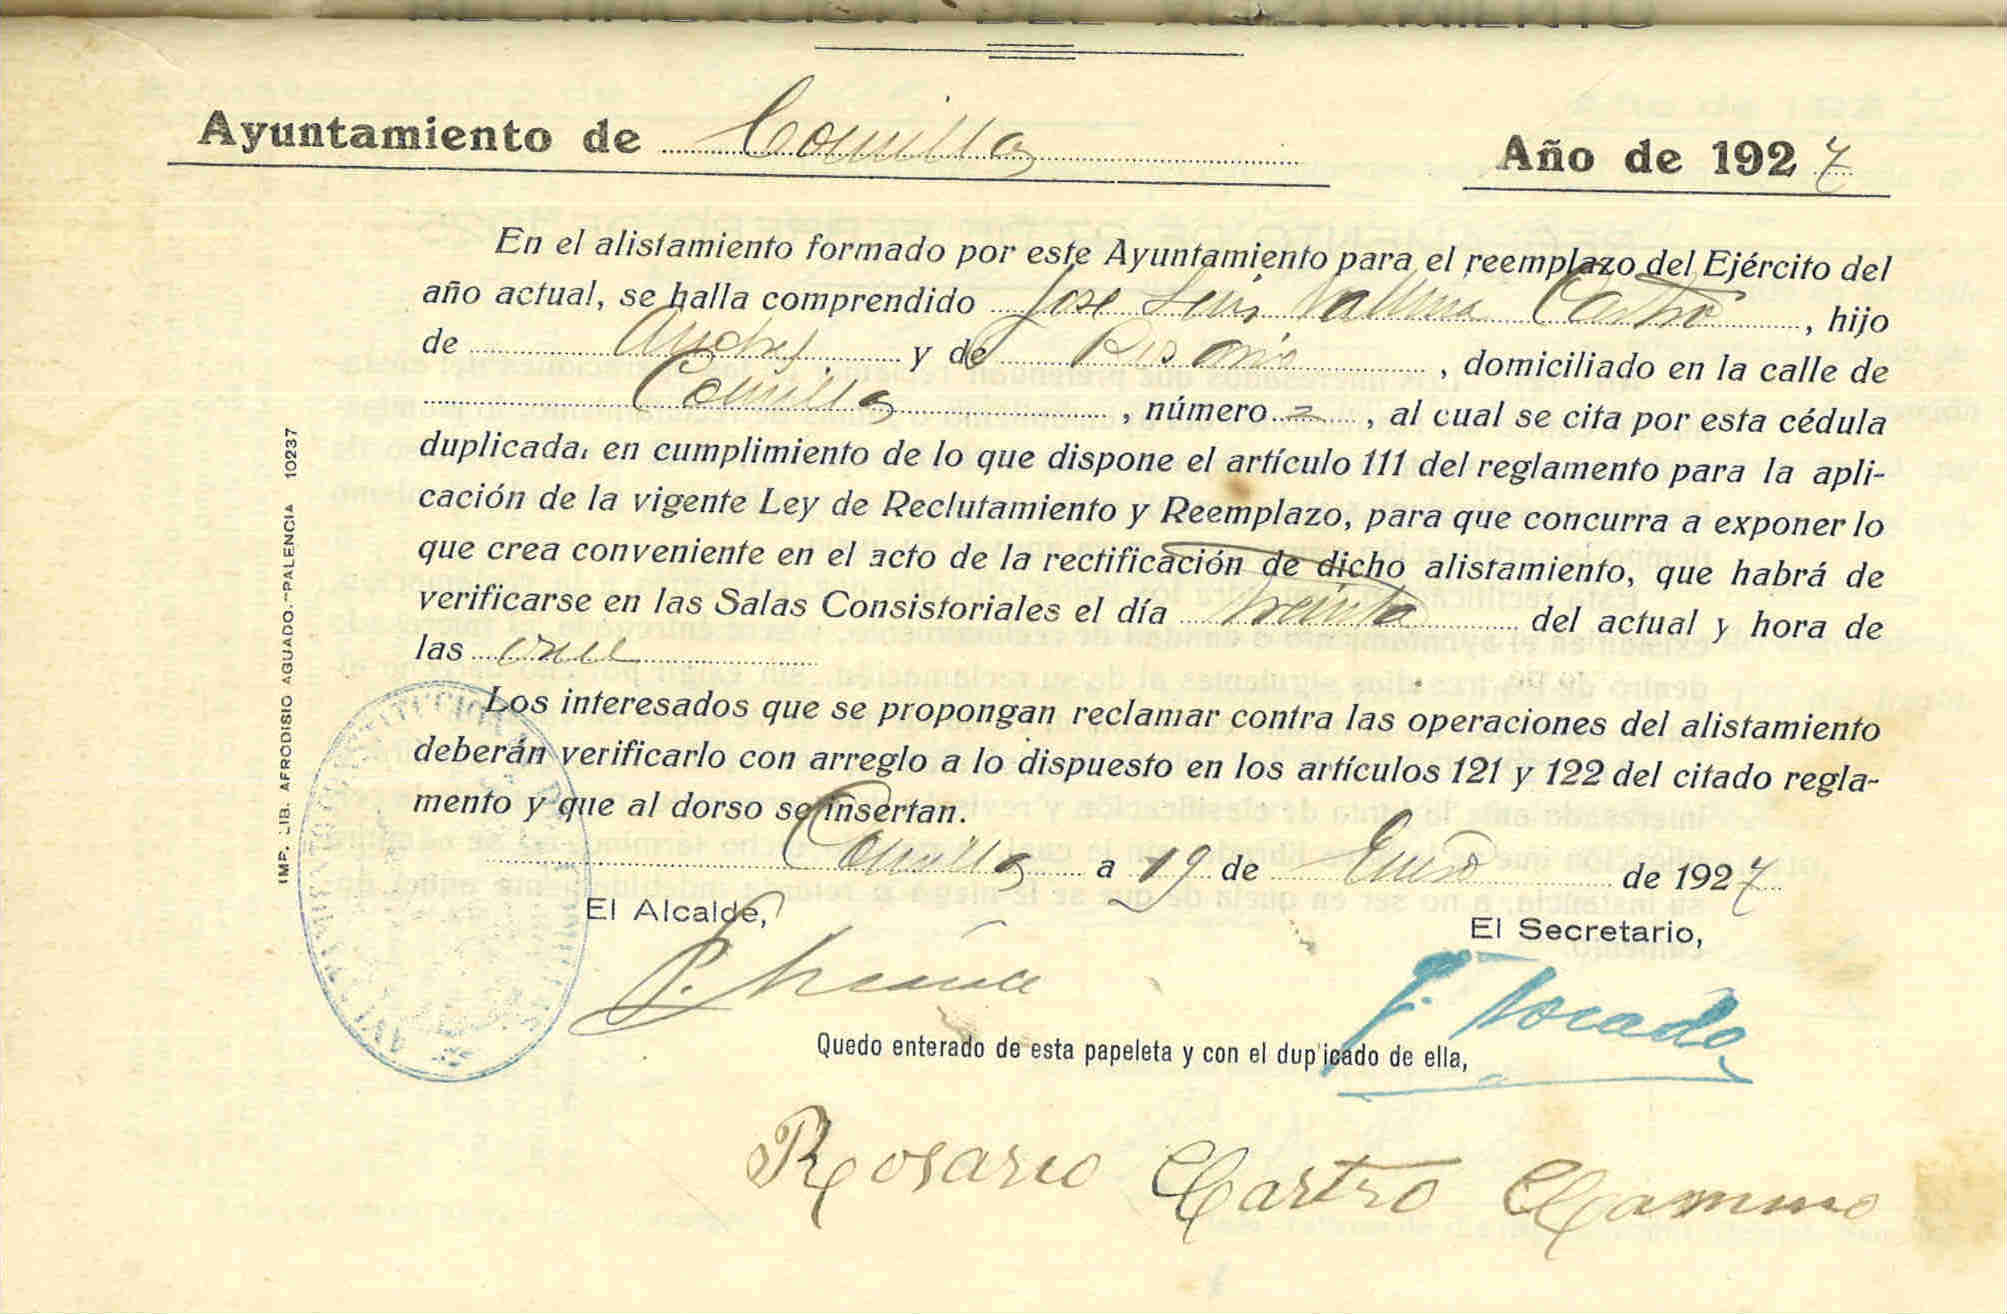 RECTIFICACIÓN DEL ALISTAMIENTO
Ayuntamiento de Comillas Año de 1927
En el alistamiento formado por este Ayuntamiento para el reemplazo del Ejército del
año actual, se halla comprendido Jose Luis Vallina Castro, hijo
de Andres y de Rosario, domiciliado en la calle de
Comillas, número 2, al cual se cita por esta cédula
duplicada, en cumplimiento de lo que dispone el artículo 111 del reglamento para la apli-
cación de la vigente Ley de Reclutamiento y Reemplazo, para que concurra a exponer lo
que crea conveniente en el acto de la rectificación de dicho alistamiento, que habrá de
verificarse en las Salas Consistoriales el día treinta del actual y hora de
las once
Los interesados que se propongan reclamar contra las operaciones del alistamiento
deberán verificarlo con arreglo a lo dispuesto en los artículos 121 y 122 del citado regla-
mento y que al dorso se insertan.
Comillas a 19 de Enero de 1927
El Alcalde,
El Secretario,
Quedo enterado de esta papeleta y con el duplicado de ella,
Rosario Castro
IMP. LIB. AFRODISIO AGUADO.-PALENCIA 10237